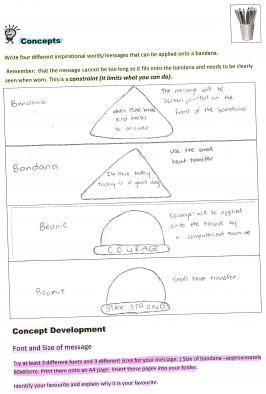 Concepts
Write four different inspirational words/messages that can be applied onto a bandana.
Remember: that the message cannot be too long so it fits onto the bandana and needs to be clearly
seen when worn. This is a constraint (it limits what you can do).
Bandana
when
and FAITH
to answer
The message will be
screen printed on the
front of the bandana
Bandana
I'm here today
today is a good day
Use the small
heat transfer
Beanie
COURAGE
'Courage' will be applied
onto the beanie by
a computerised machine
Beanie
STAY STRONG
Small heat transfer
Concept Development
Font and Size of message
Try at least 3 different fonts and 3 different sizes for your message. ( Size of bandana –approximately
60x60cm). Print them onto an A4 page. Insert these pages into your folder.
Identify your favourite and explain why it is your favourite.